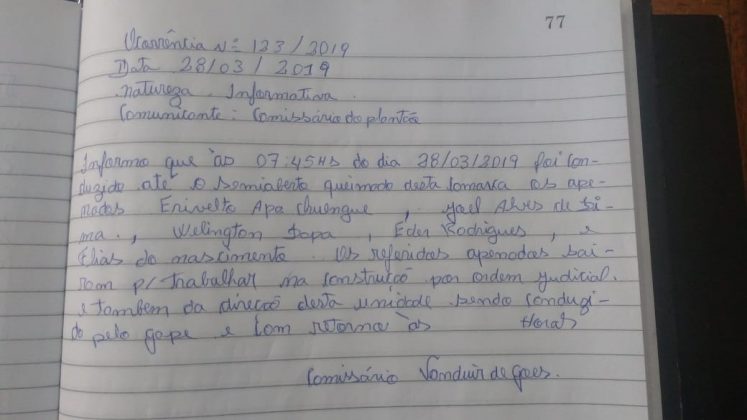 77
Ocorrência Nº 123/2019
Data 28/03/2019
natureza. Informativa.
Comunicante: Comissário do plantão
Informo que às 07:45Hs do dia 28/03/2019 foi con-
duzido até o semiaberto queimado desta comarca os ape-
nados Erivelto Apa, Jael Alves de Li-
ma., Welington, Eder Rodrigues, e
Elias do nascimento. Os referidos apenados sai-
ram p/ trabalhar na construção por ordem judicial.
e tambem da direção desta unidade sendo conduzi-
do pelo gape e com retorno às Horas
Comissário de Goes.